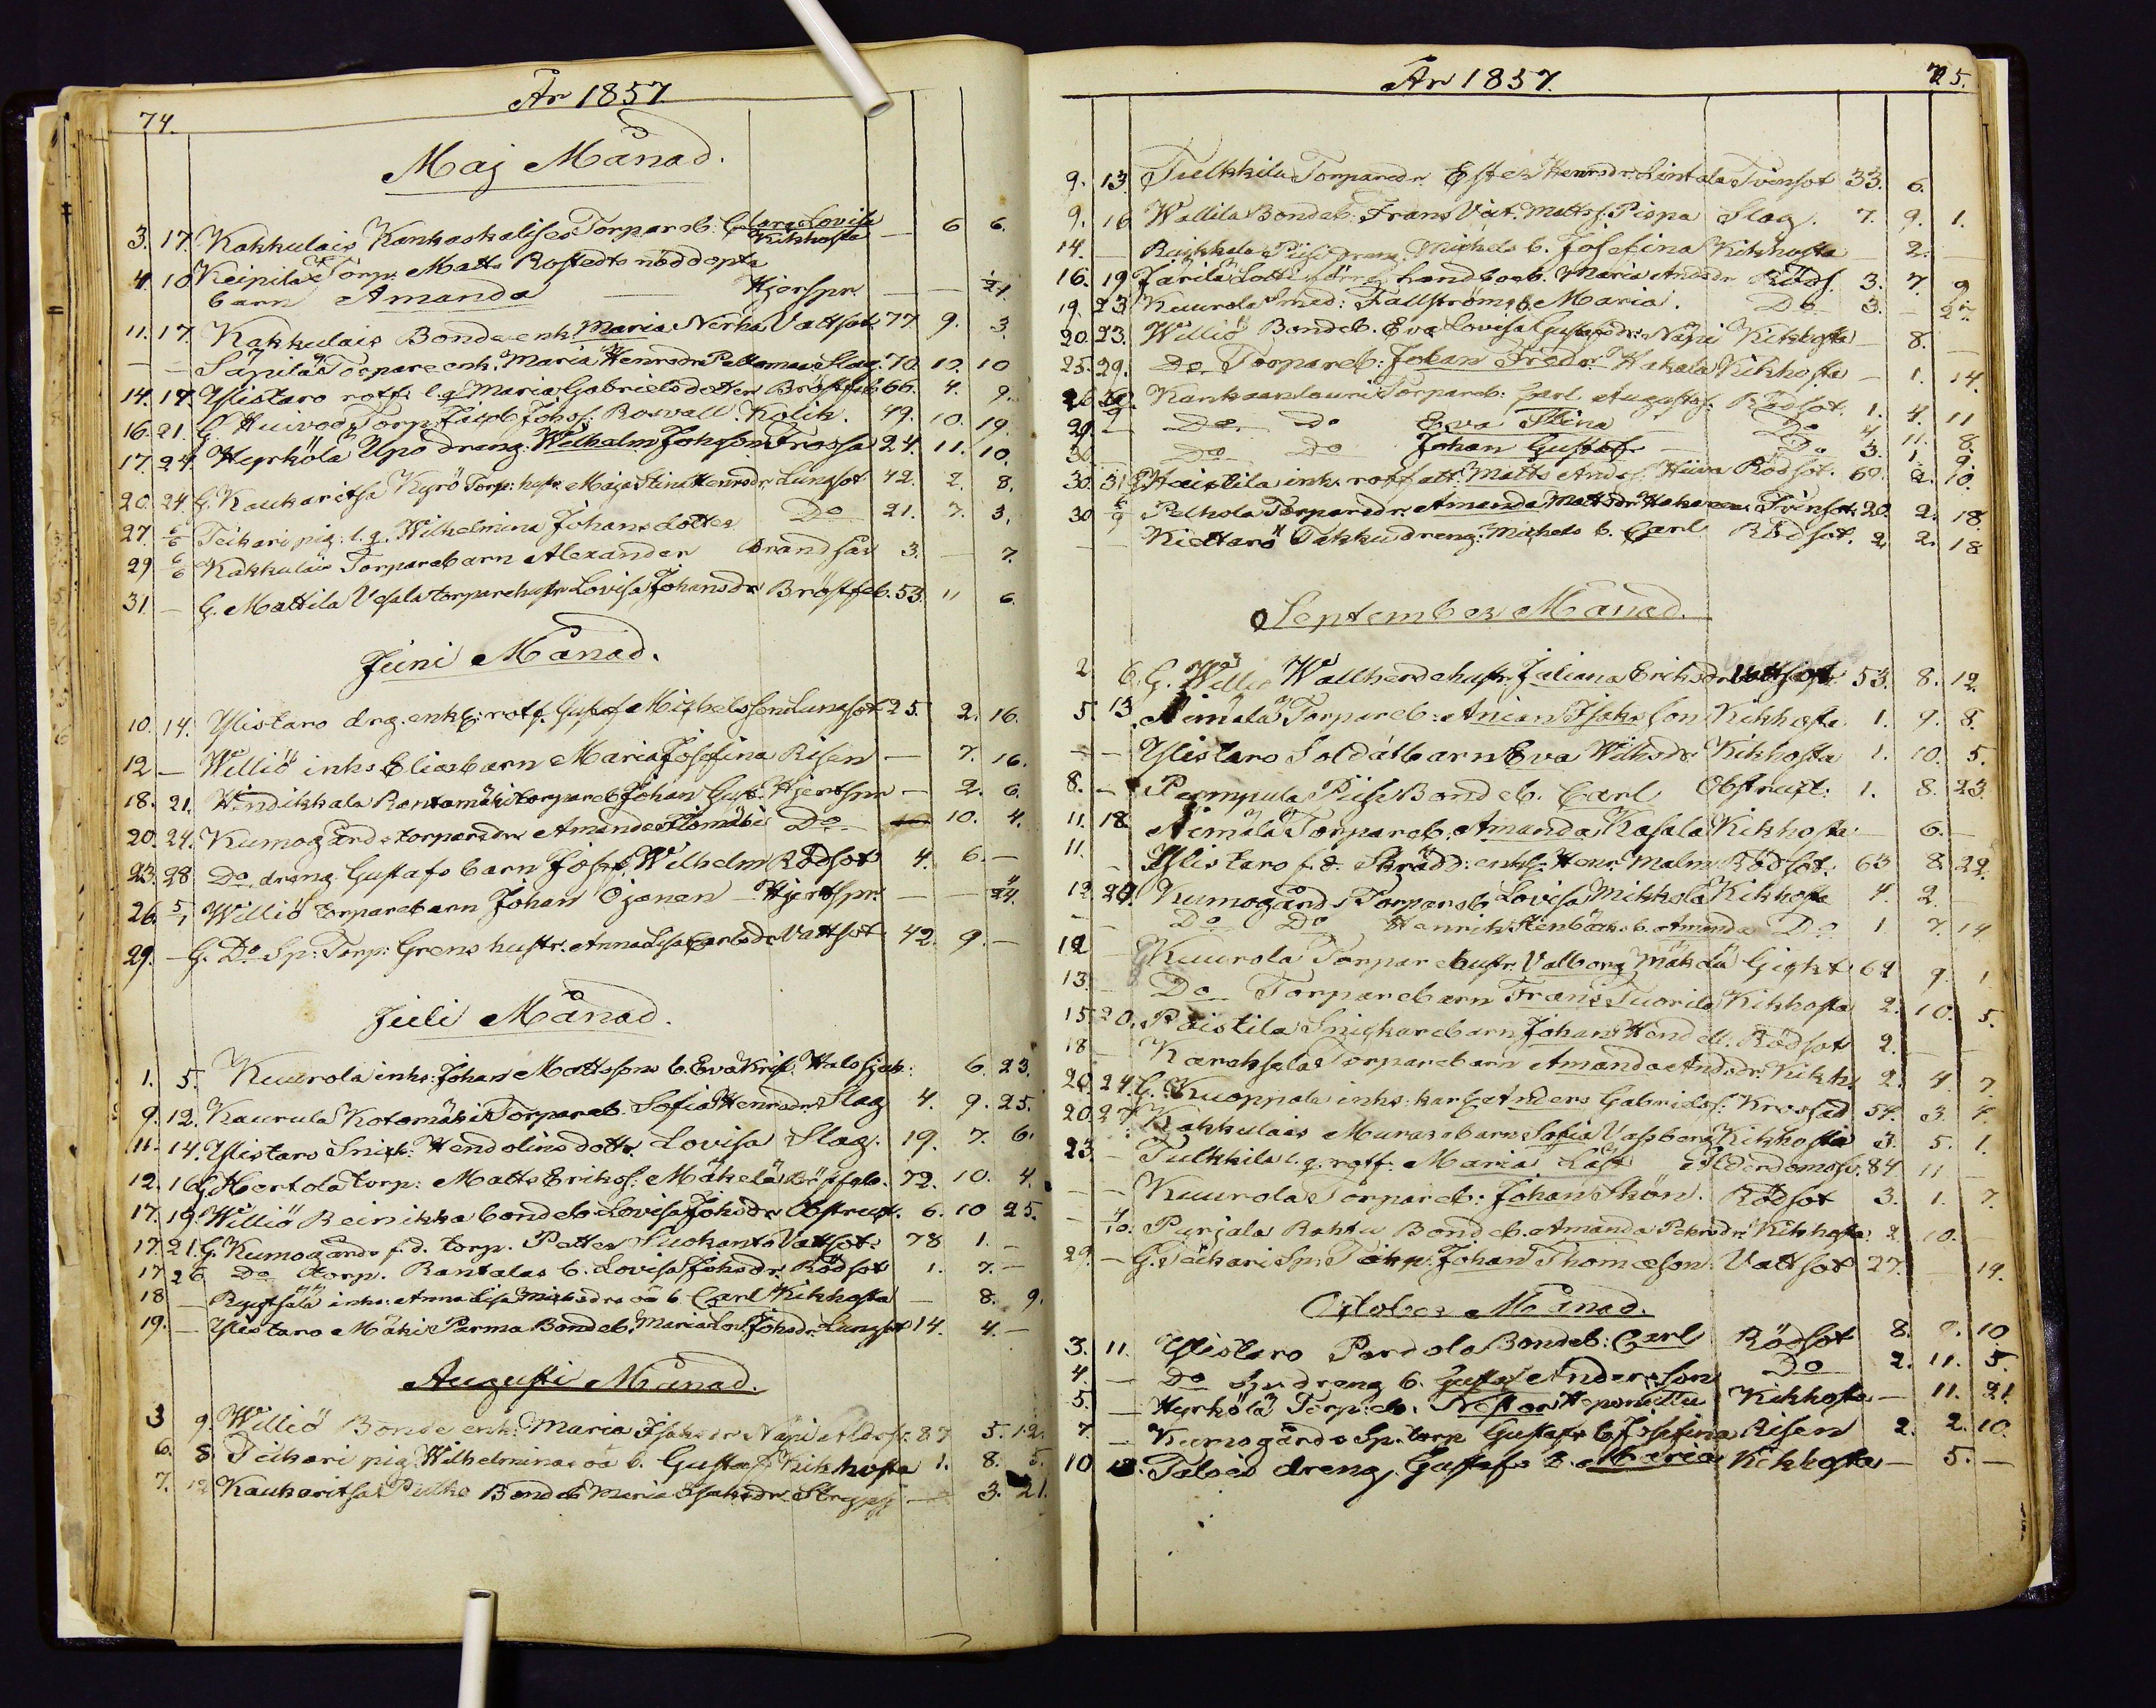 År 1857.
74.
Maj Månad.
3. 17. Kakkulais Kankaskalises Torpareb: Clara Lovisa Kikhosta — 6 6.
4. 10 Keipilä Torp: Matts Rostedts nöddöpta
barn Amanda — Hjerspr. — — 1/24
11. 17. Kakkulais Bonde enk: Maria Nerha Vattsot. 77 9. 3.
— — Säpilä Torpare enk. Maria Henrsdr Slag. 70. 10. 10
14. 17. Ylistaro rotf: l.q. Maria Gabrielsdotter Bröstfeb. 66. 4. 9.
16. 21. G. Huivod Torp. Jacob Johss. Rosvall Kolik. 49. 10. 19.
17. 24. Hyrkölä Upo dräng Wilhelm Johsson Frossa 24. 11. 10.
20. 24. G. Kaukaritsa Kyrö Torp: hustr. Maja Stina Henrsdr. Lungsot 42. 2. 8.
27. 6/6 Teikari pig: l.q. Wilhelmina Johansdotter Do 21. 7. 3.
29 6/6 Kakkulais Torparebarn Alexander Brandsår 3. — 7.
31. — G. Mattila Vesala torparehustr Lovisa Johansdr Bröstfeb. 53. 11 6.
Juni Månad.
10. 14. Ylistaro drg. enkl: rotf. Gustaf Michelsson Lungsot 25. 2. 16.
12 — Williö inhs Elias barn Maria Josefina Risen — 7. 16.
18. 21. Hindikkala Rantamäki torpareb Johan Gust. Hjertspr — 2. 6.
20. 24. Kumogårds torparedr Amanda Do 10. 4.
23. 28 Do dräng Gustafs barn Josef Wilhelm Rödsot 4. 6. —
26. 5/7 Williö torparebarn Johan Ojanen Hjertspr. — — 24.
29. — G. Do Sp: Torp: Grens hustr. Anna Lisa Carlsdr Vattsot 42. 9. —
Juli Månad.
1. 5. Kuurola inhs: Johan Mattssons b. Eva Krist. Halssjuk: 6. 23.
9. 12. Kaurula Kotamäki Torpareb. Sofia Henrsdr Slag 4. 9. 25.
11. 14. Ylistaro Snick: Hendolins dottr. Lovisa Slag. 19. 7. 6.
12. 16 G. Hertola torp: Matts Erikss. Mäkelä Bröstfeb. 72. 10. 4.
17. 19. Williö Reinikka bondeb Lovisa Johsdr Obstruct. 6. 10 25.
17. 21. G. Kumogårds f.d. torp. Petter Suokants Vattsot. 78 1. —
17 26 Do torp. Rantalas b. Lovisa Johsdr. Rödsot 1. 7. —
18 — inhs: Anna Lisa oä b. Carl Kikhosta — 8. 9.
19. — Ylistaro Mäki Parma Bondeb. Maria Lov. Johsdr. Lungsot 14. 4. —
Augusti Månad.
3 9. Williö Bonde enk: Maria Isaksdr Näpi Åldrsv. 87 5. 12.
6. 8. Teikari pig. Wilhelminas oä b. Gustaf Kikhosta 1. 8. 5.
7. 12 Kaukaritsa Bondeb Maria Isaksdr — 3. 21.
År 1857. 75.
9. 13 Tulkkila Torparedr. Ester Henrsdr. Lintala Tvinsot 33. 6.
9. 16 Wallila Bondeb: Frans Vikt. Mattss. Pispa Slag. 7. 9. 1.
14. — Raikkala Piili dräng Michels b. Josefina Kikhosta 2. —
16. 19 Järilä Lotti b. Maria Andsdr Röds. 3. 7. 9
19. 23 Kuurola Smed: Fallströms b. Maria. Do 3. — 27.
20. 23. Williö Bondeb. Eva Lovisa Gustafsdr. Näpi Kikhosta — 8. —
25. 29. Do Torpareb: Johan Fredr. Hakala Kikhosta — 1. 14.
Kankaanlouri Torpareb: Carl Augustss. Rödsot. 1. 4. 11
29. — Do Do Eva Stina Do 4 11. 8.
30 Do Do Johan Gustaf. — Do 3. 1. 9.
30. 31 G. Haistila inhs rotf att: Matts Andss. Hiiva Rödsot. 60. 2. 10.
30 6/9 Pelhola Torparedr. Amanda Mattsdr. Tvinsot 20. 2. 18.
— Kiettarö Takku dräng: Michels b. Carl Rödsot. 2. 2. 18
September Månad.
2. 6. G. Williö Wallherdehustr. Juliana Eriksdr. Vattsot 53. 8. 12.
5. 13. Nimälä Torpareb: Anian Isaksson Kikhosta. 1. 9. 8.
— — Ylistaro Soldatbarn Eva Wilhsdr. Kikhosta 1. 10. 5.
8. — Pampula Piili Bondeb. Carl Obstruct: 1. 8. 23.
11. 18. Nimälä Torpareb. Amanda Kasala Kikhosta — 6. —
11. — Ylistaro f.d. Skrädd: enkl: Henr. Malm Rödsot: 63 8. 22.
12 20. Kumogårds Torpareb Lovisa Mikkola Kikhosta 4. 2. —
— Do Do Henrik Stenbäcks b. Amanda Do 1. 7. 14.
12 — G. Kuurola Torparehustr. Valborg Mäkelä Gickt 69 9. 1.
13. — Do Torparebarn Frans Tuorila Kikhosta 2. 10. 5.
15 20. Paistila Snickarebarn Johan Hendell. Rödsot 2. —
18 — Karahsala Torparebarn Amanda Andsdr. Kikh. 2. 4. 7.
20. 24. G. Kuoppala inhs: karl Anders Gabrielss. Krossad 54. 3. 4.
20. 27. Kakkulais Murarebarn Sofia Vassberg Kikhosta 3. 5. 1.
23. — Tulkkila l.q. rotf: Maria Läst Ålderdomssv. 84 11 —
— — Kuurola Torpareb: Johan Skön. Rödsot 3. 1. 7.
— 4/10. Purjala Rahtu Bondeb. Amanda Petersdr. Kikhosta 2. 10. —
29. — G. Teikari Sp: Torp: Johan Thomasson. Vattsot 27. — 19.
October Månad.
3. 11. Ylistaro Perdola Bondeb: Carl Rödsot 8. 9. 10
4. — Do dräng b. Gustaf Andersson Do 2. 11. 5.
5. — Hyrkölä Torp:eb: Nestor Heponiittu Kikhosta — 11. 21
7. — Kumogårds Sp. torp Gustafs b Josefina Risen 2. 2. 10.
10 18. Talois dreng. Gustafs b. Maria Kikhosta — 5. —